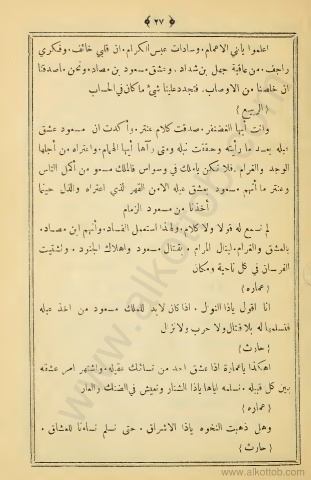 ﴿ ٢٧ ﴾
اعلموا يابني الاعمام . وسادات عبس الكرام . ان قلبي خائف . وفكري
راجف . من عاقبة جهل بن شداد . وعشق مسعود بن مصاد . ونحن ماصدقنا
ان خلصنا من الاوصاب . فتجدد علينا شيء ما كان في الحساب
{ الربيع }
وانت أيها الغضنفر . صدقت كلام عنتر . وأكدت ان مسعود عشق
عبله بعد ما رأيته وحققت نبله ومتى رآها أيها الهمام . واعتراه من أجلها
الوجد والغرام . فلا تكن ياملك في وسواس فالملك مسعو من أكمل الناس
وعنتر ما أتهم مسعود بعشق عبله الا من القهر لذي اعتراه والذل حينما
أخذنا من مسعود الزمام
لم نسمع له قولا ولا كلام . ولهذا استعمل الفساد . وأتهم ابن مصاد .
بالعشق والغرام . لينال المرام . بقتال مسعود واهلاك الجنود . وتشتيت
الفرسان في كل ناحية ومكان
{ عماره }
انا اقول ياذا النوال . اذا كان لابد للملك مسعود من اخذ عبله
فنسلمها له بلا قتال ولا حرب ولا نزال
{ حارث }
اهكذا ياعمارة اذا عشق احد من نسائك عقيله . واشتهر امر عشقه
بين كل قبيله . نسلمه اياها ياذا الشنار ونعيش في الضنك والعار
{ عماره }
وهل ذهبت النخوه ياذا الاشراق . حتى نسلم نساءنا للعشاق .
{ حارث }
www.alkottob.com
www.alkottob.com